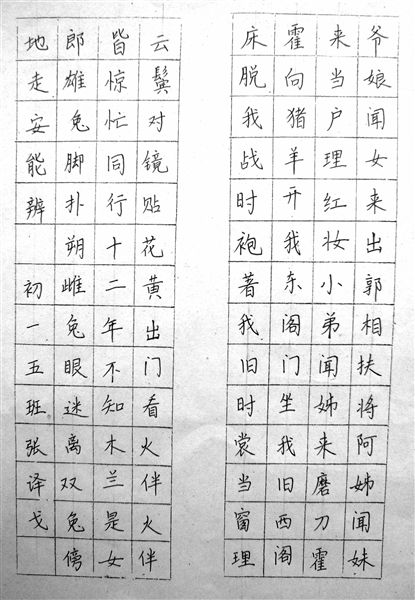 爷娘闻女来出郭相扶将阿姊闻妹
来当户理红妆小弟闻姊来磨刀霍
霍向猪羊开我东阁门坐我旧西阁
床脱我战时袍著我旧时裳当窗理
云鬓对镜贴花黄出门看火伴火伴
皆惊忙同行十二年不知木兰是女
郎雄兔脚扑朔雌兔眼迷离双兔傍
地走安能辨 初一五班张译戈